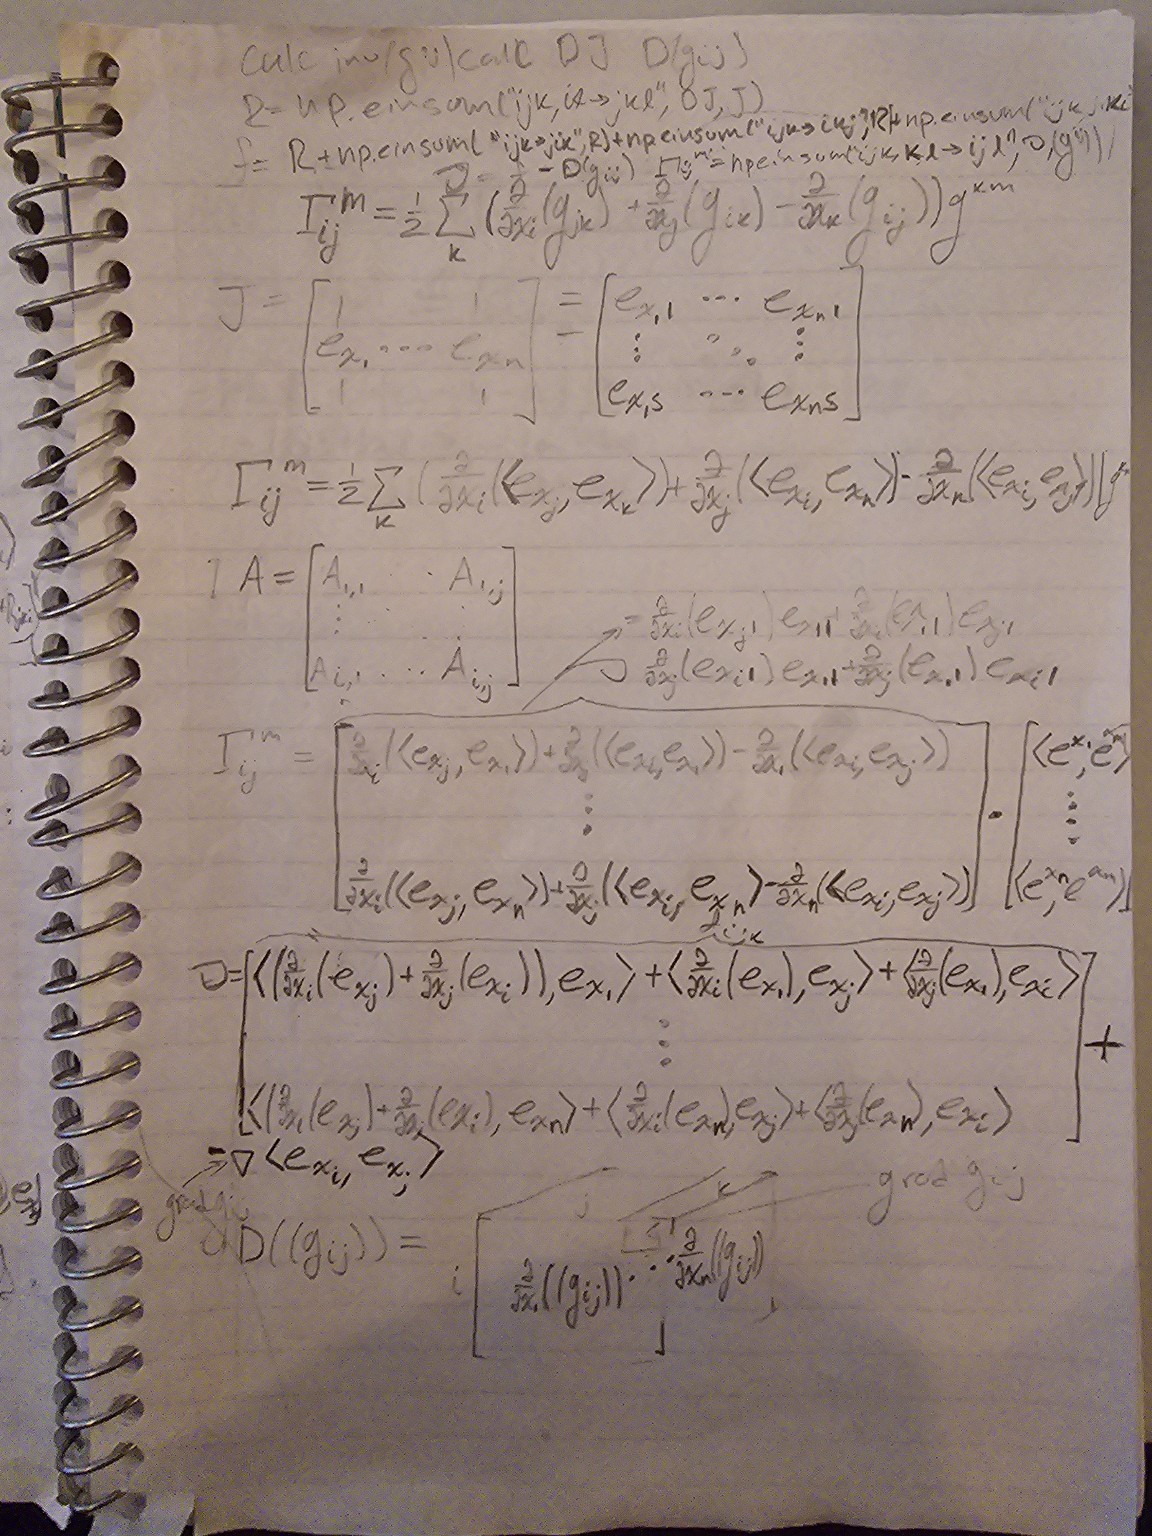 Calc inv(gij) calc DJ D(gij)
R = np.einsum("ijk,il→jkl", DJ, J)
f = R + np.einsum("ijk→jik", R) + np.einsum("ijk→ikj", R) + np.einsum("ijk
- D(gij) Γijᵐ = np.einsum("ijk,kl→ijl", D,(gij))
Γijᵐ = 1/2 Σk (∂/∂xi(gjk) + ∂/∂xj(gik) - ∂/∂xk(gij)) gᵏᵐ
J = [ex1 ... exn] = [ex,1 ... exn1
⋮ ⋱ ⋮
ex1s ... exns]
Γijᵐ = 1/2 Σk (∂/∂xi(⟨exj, exk⟩) + ∂/∂xj(⟨exi, exn⟩) - ∂/∂xn(⟨exi, exj⟩)) g
A = [A1,1 ... A1,j
⋮
Ai,1 ... Ai,j]
∂/∂xi(exj1) ex11 + ∂/∂xi(ex11) exj1
∂/∂xj(exi1) ex11 + ∂/∂xj(ex11) exi1
Γijᵐ = [∂/∂xi(⟨exj, ex1⟩) + ∂/∂xj(⟨exi, ex1⟩) - ∂/∂x1(⟨exi, exj⟩)
⋮
∂/∂xi(⟨exj, exn⟩) + ∂/∂xj(⟨exi, exn⟩ - ∂/∂xn(⟨exi, exj⟩)] · [⟨eˣ¹, eˣᵐ⟩
⋮
⟨eˣⁿ, eˣᵐ⟩]
[⟨(∂/∂xi(exj) + ∂/∂xj(exi)), ex1⟩ + ⟨∂/∂xi(ex1), exj⟩ + ⟨∂/∂xj(ex1), exi⟩
⋮
⟨(∂/∂xi(exj) + ∂/∂xj(exi), exn⟩ + ⟨∂/∂xi(exn), exj⟩ + ⟨∂/∂xj(exn), exi⟩] +
- ∇⟨exi, exj⟩
grad gij
grad gij
D((gij)) = i [∂/∂x1((gij)) ... ∂/∂xn((gij))]
j
k